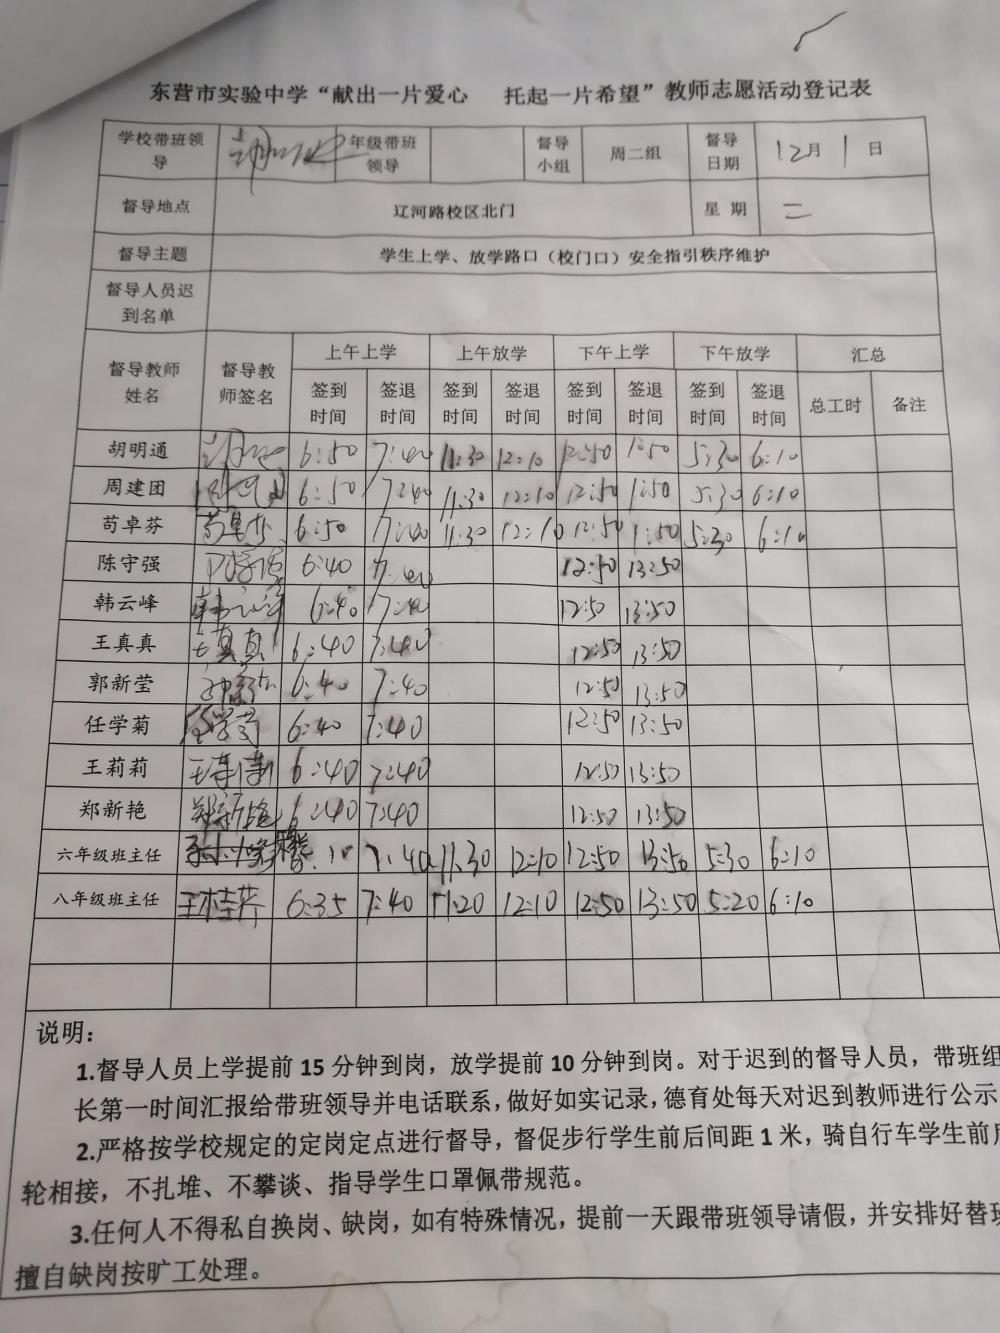 东营市实验中学“献出一片爱心 托起一片希望”教师志愿活动登记表
学校带班领导 年级带班领导 督导小组 周二组 督导日期 12月1日
督导地点 辽河路校区北门 星 期 二
督导主题 学生上学、放学路口（校门口）安全指引秩序维护
督导人员迟到名单
督导教师姓名 督导教师签名 上午上学 上午放学 下午上学 下午放学 汇总
签到时间 签退时间 签到时间 签退时间 签到时间 签退时间 签到时间 签退时间 总工时 备注
胡明通 6:50 7:40 11:30 12:10 12:50 1:50 5:30 6:10
周建团 6:50 7:40 11:30 12:10 12:50 1:50 5:30 6:10
苟卓芬 苟卓芬 6:50 7:40 11:30 12:10 12:50 1:50 5:30 6:10
陈守强 6:40 7:40 12:50 13:50
韩云峰 韩云峰 6:40 7:40 12:50 13:50
王真真 王真真 6:40 7:40 12:50 13:50
郭新莹 6:40 7:40 12:50 13:50
任学菊 任学菊 6:40 7:40 12:50 13:50
王莉莉 王莉莉 6:40 7:40 12:50 13:50
郑新艳 郑新艳 6:40 7:40 12:50 13:50
六年级班主任 7:40 11:30 12:10 12:50 13:50 5:30 6:10
八年级班主任 王桂芹 6:35 7:40 11:20 12:10 12:50 13:50 5:20 6:10
说明：
1.督导人员上学提前 15 分钟到岗，放学提前 10 分钟到岗。对于迟到的督导人员，带班组
长第一时间汇报给带班领导并电话联系，做好如实记录，德育处每天对迟到教师进行公示
2.严格按学校规定的定岗定点进行督导，督促步行学生前后间距 1 米，骑自行车学生前后
轮相接，不扎堆、不攀谈、指导学生口罩佩带规范。
3.任何人不得私自换岗、缺岗，如有特殊情况，提前一天跟带班领导请假，并安排好替班
擅自缺岗按旷工处理。